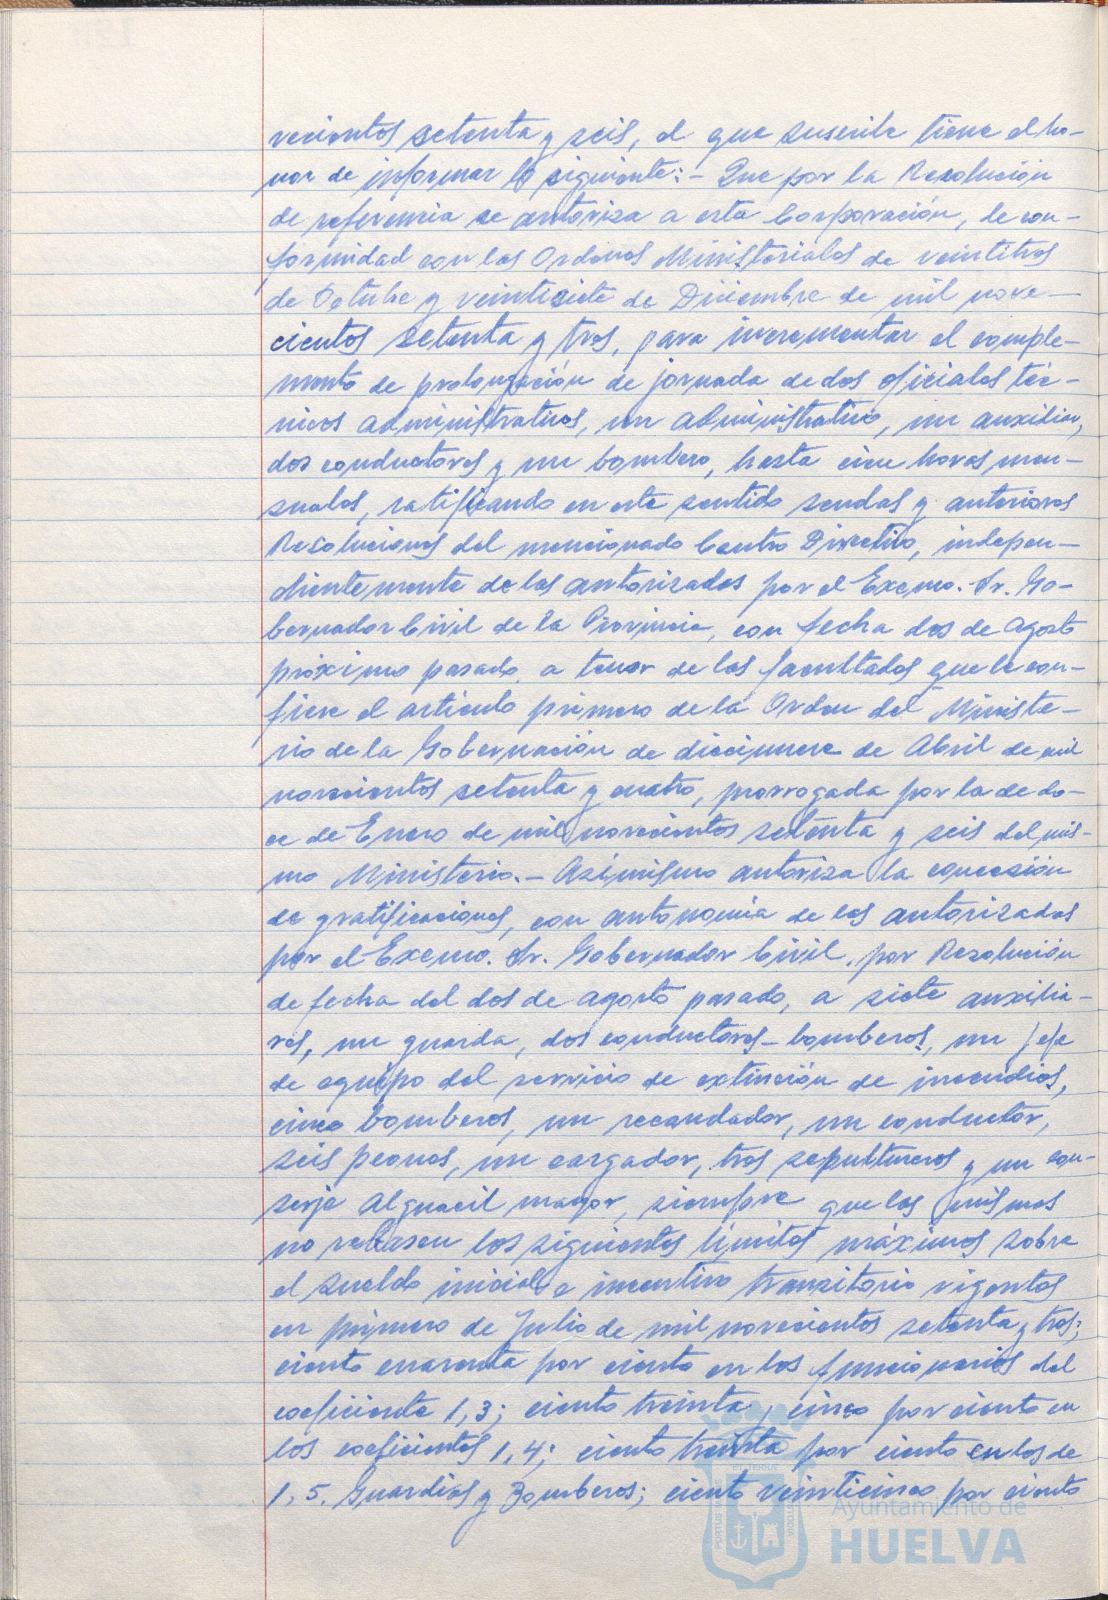 vecientos setenta y seis, el que suscribe tiene el ho-
nor de informar lo siguiente:- Que por la Resolución
de referencia se autoriza a esta Corporación, de con-
formidad con las Ordenes Ministeriales de veintitres
de Octubre y veintisiete de Diciembre de mil nove-
cientos setenta y tres, para incrementar el comple-
mento de prolongación de jornada de dos oficiales téc-
nicos administrativos, un administrativo, un auxiliar,
dos conductores y un bombero, hasta cien horas men-
suales, ratificando en este sentido sendas y anteriores
Resoluciones del mencionado Centro Directivo, indepen-
dientemente de las autorizadas por el Excmo. Sr. Go-
bernador Civil de la Provincia, con fecha dos de Agosto
próximo pasado, a tenor de las facultades que le con-
fiere el artículo primero de la Orden del Ministe-
rio de la Gobernación de diecinueve de Abril de mil
novecientos setenta y cuatro, prorrogada por la de do-
ce de Enero de mil novecientos setenta y seis del mis-
mo Ministerio.- Asimismo autoriza la concesión
de gratificaciones, con autonomía de las autorizadas
por el Excmo. Sr. Gobernador Civil, por Resolución
de fecha del dos de agosto pasado, a siete auxilia-
res, un guarda, dos conductores-bomberos, un Jefe
de equipo del servicio de extinción de incendios,
cinco bomberos, un recaudador, un conductor,
seis peones, un cargador, tres sepultureros y un con-
serje Alguacil mayor, siempre que las mismas
no rebasen los siguientes límites máximos sobre
el sueldo inicial e incentivo transitorio vigentes
en primero de Julio de mil novecientos setenta y tres;
ciento cuarenta por ciento en los funcionarios del
coeficiente 1,3; ciento treinta y cinco por ciento en
los coeficientes 1,4; ciento treinta por ciento en los de
1,5, Guardias y Bomberos; ciento veinticinco por ciento
Ayuntamiento de
HUELVA